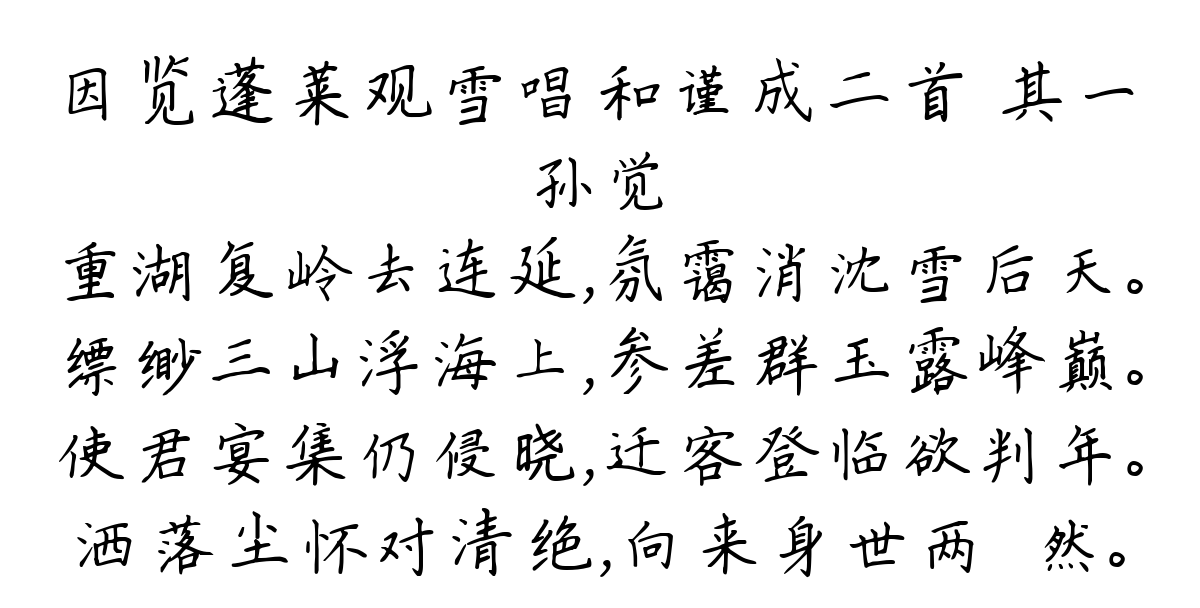 因览蓬莱观雪唱和谨成二首 其一
孙觉
重湖复岭去连延,氛霭消沈雪后天。
缥缈三山浮海上,参差群玉露峰巅。
使君宴集仍侵晓,迁客登临欲判年。
洒落尘怀对清绝,向来身世两 然。